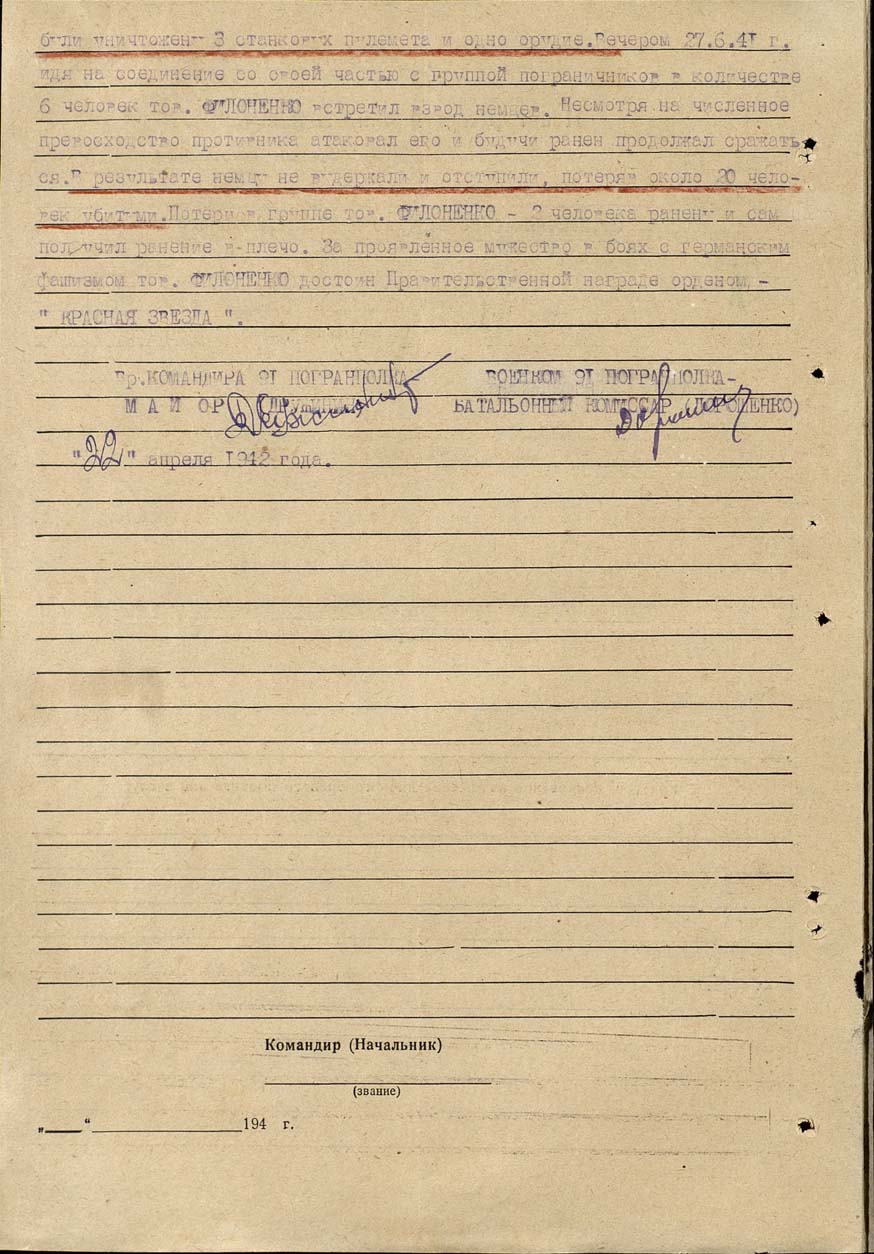 были уничтожены 3 станковых пулемета и одно орудие.Вечером 27.6.41 г.
идя на соединение со своей частью с группой пограничников в количестве
6 человек тов. ФИЛОНЕНКО встретил взвод немцев. Несмотря на численное
превосходство противника атаковал его и будучи ранен продолжал сражать
ся.В результате немцы не выдержали и отступили, потеряв около 20 чело-
век убитыми.Потери в группе тов. ФИЛОНЕНКО - 2 человека ранены и сам
получил ранение в плечо. За проявленное мужество в боях с германским
фашизмом тов. ФИЛОНЕНКО достоин Правительственной награде орденом -
" КРАСНАЯ ЗВЕЗДА ".
Вр.КОМАНДИРА 91 ПОГРАНПОЛКА ВОЕНКОМ 91 ПОГРАНПОЛКА-
М А Й О Р БАТАЛЬОННЫЙ КОМИССАР (ДОРОШЕНКО)
"22" апреля 1942 года.
Командир (Начальник)
(звание)
„ “ 194 г.